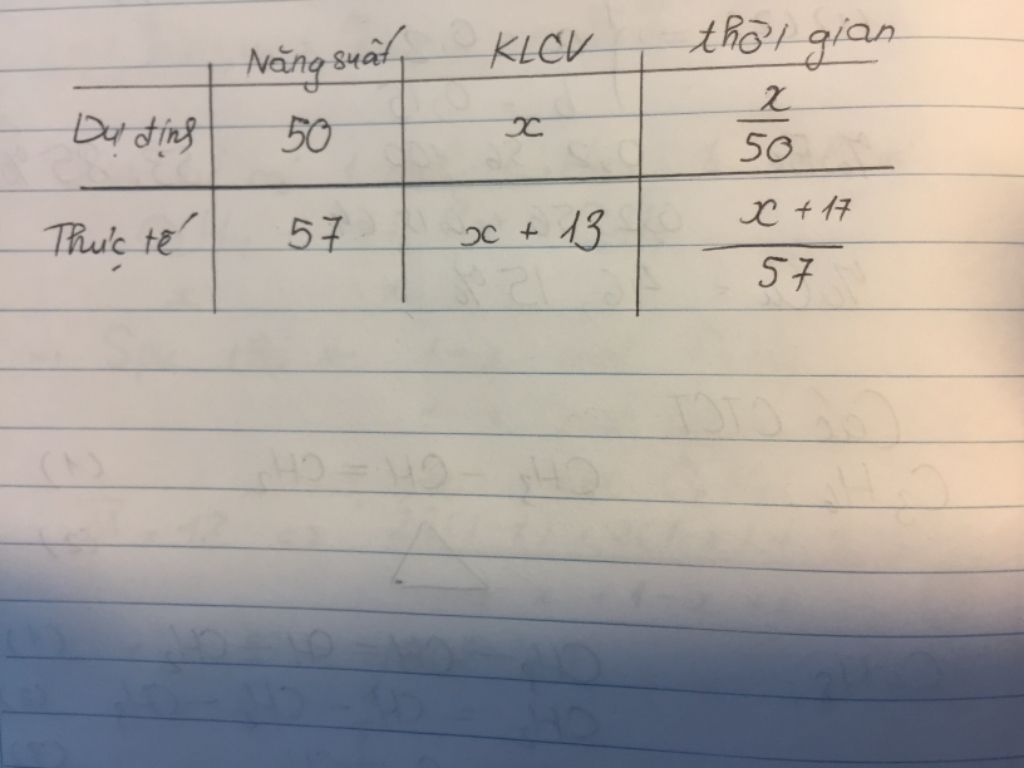 Năng suất KLCV thời gian
Dự định 50 x x/50
Thực tế 57 x + 13 x + 17/57